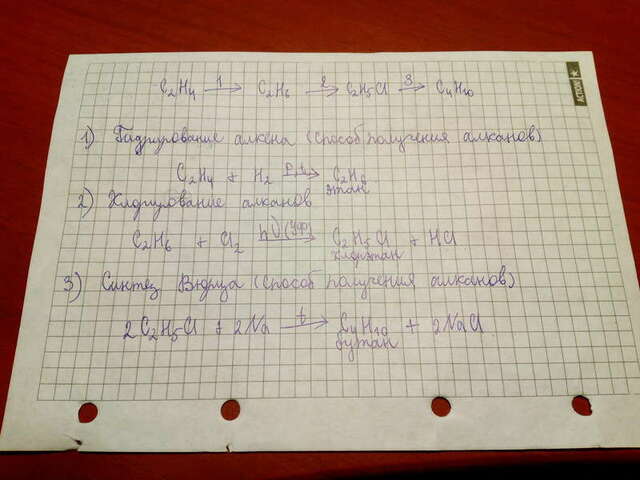 C2H4 1→ C2H6 2→ C2H5Cl 3→ C4H10
ACTION!
1) Гидрирование алкена (способ получения алканов)
C2H4 + H2 P,t→ C2H6
этан
2) Хлорирование алканов
C2H6 + Cl2 hν(УФ)→ C2H5Cl + HCl
хлорэтан
3) Синтез Вюрца (способ получения алканов)
2C2H5Cl + 2Na t→ C4H10 + 2NaCl
бутан